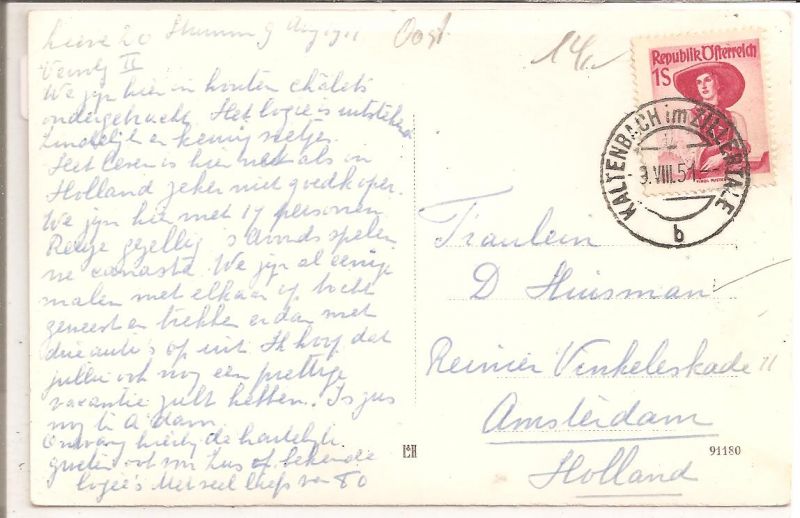 Lieve Zo Stumm 9 Aug
Oost
We zijn hier in houten châlets
ondergebracht. Het logie is uitstekend
zindelijk en keurig netjes.
Het leven is hier net als in
Holland zeker niet goedkoper.
We zijn hier met 17 personen
Reuze gezellig s'avonds spelen
we canasta. We zijn al eenige
malen met elkaar op tocht
geweest en trekken er dan met
drie auto's op uit. Ik hoop dat
jullie ook nog een prettige
vacantie zult hebben. Is zus
nog in A'dam
Ontvang hierbij de hartelijke
groeten ook van
logie's
Republik Österreich
1S
KALTENBACH im ZILLERTALE
9.VIII.51
b
Fraulein
D Huisman
Reinier Vinkeleskade 11
Amsterdam
Holland
91180